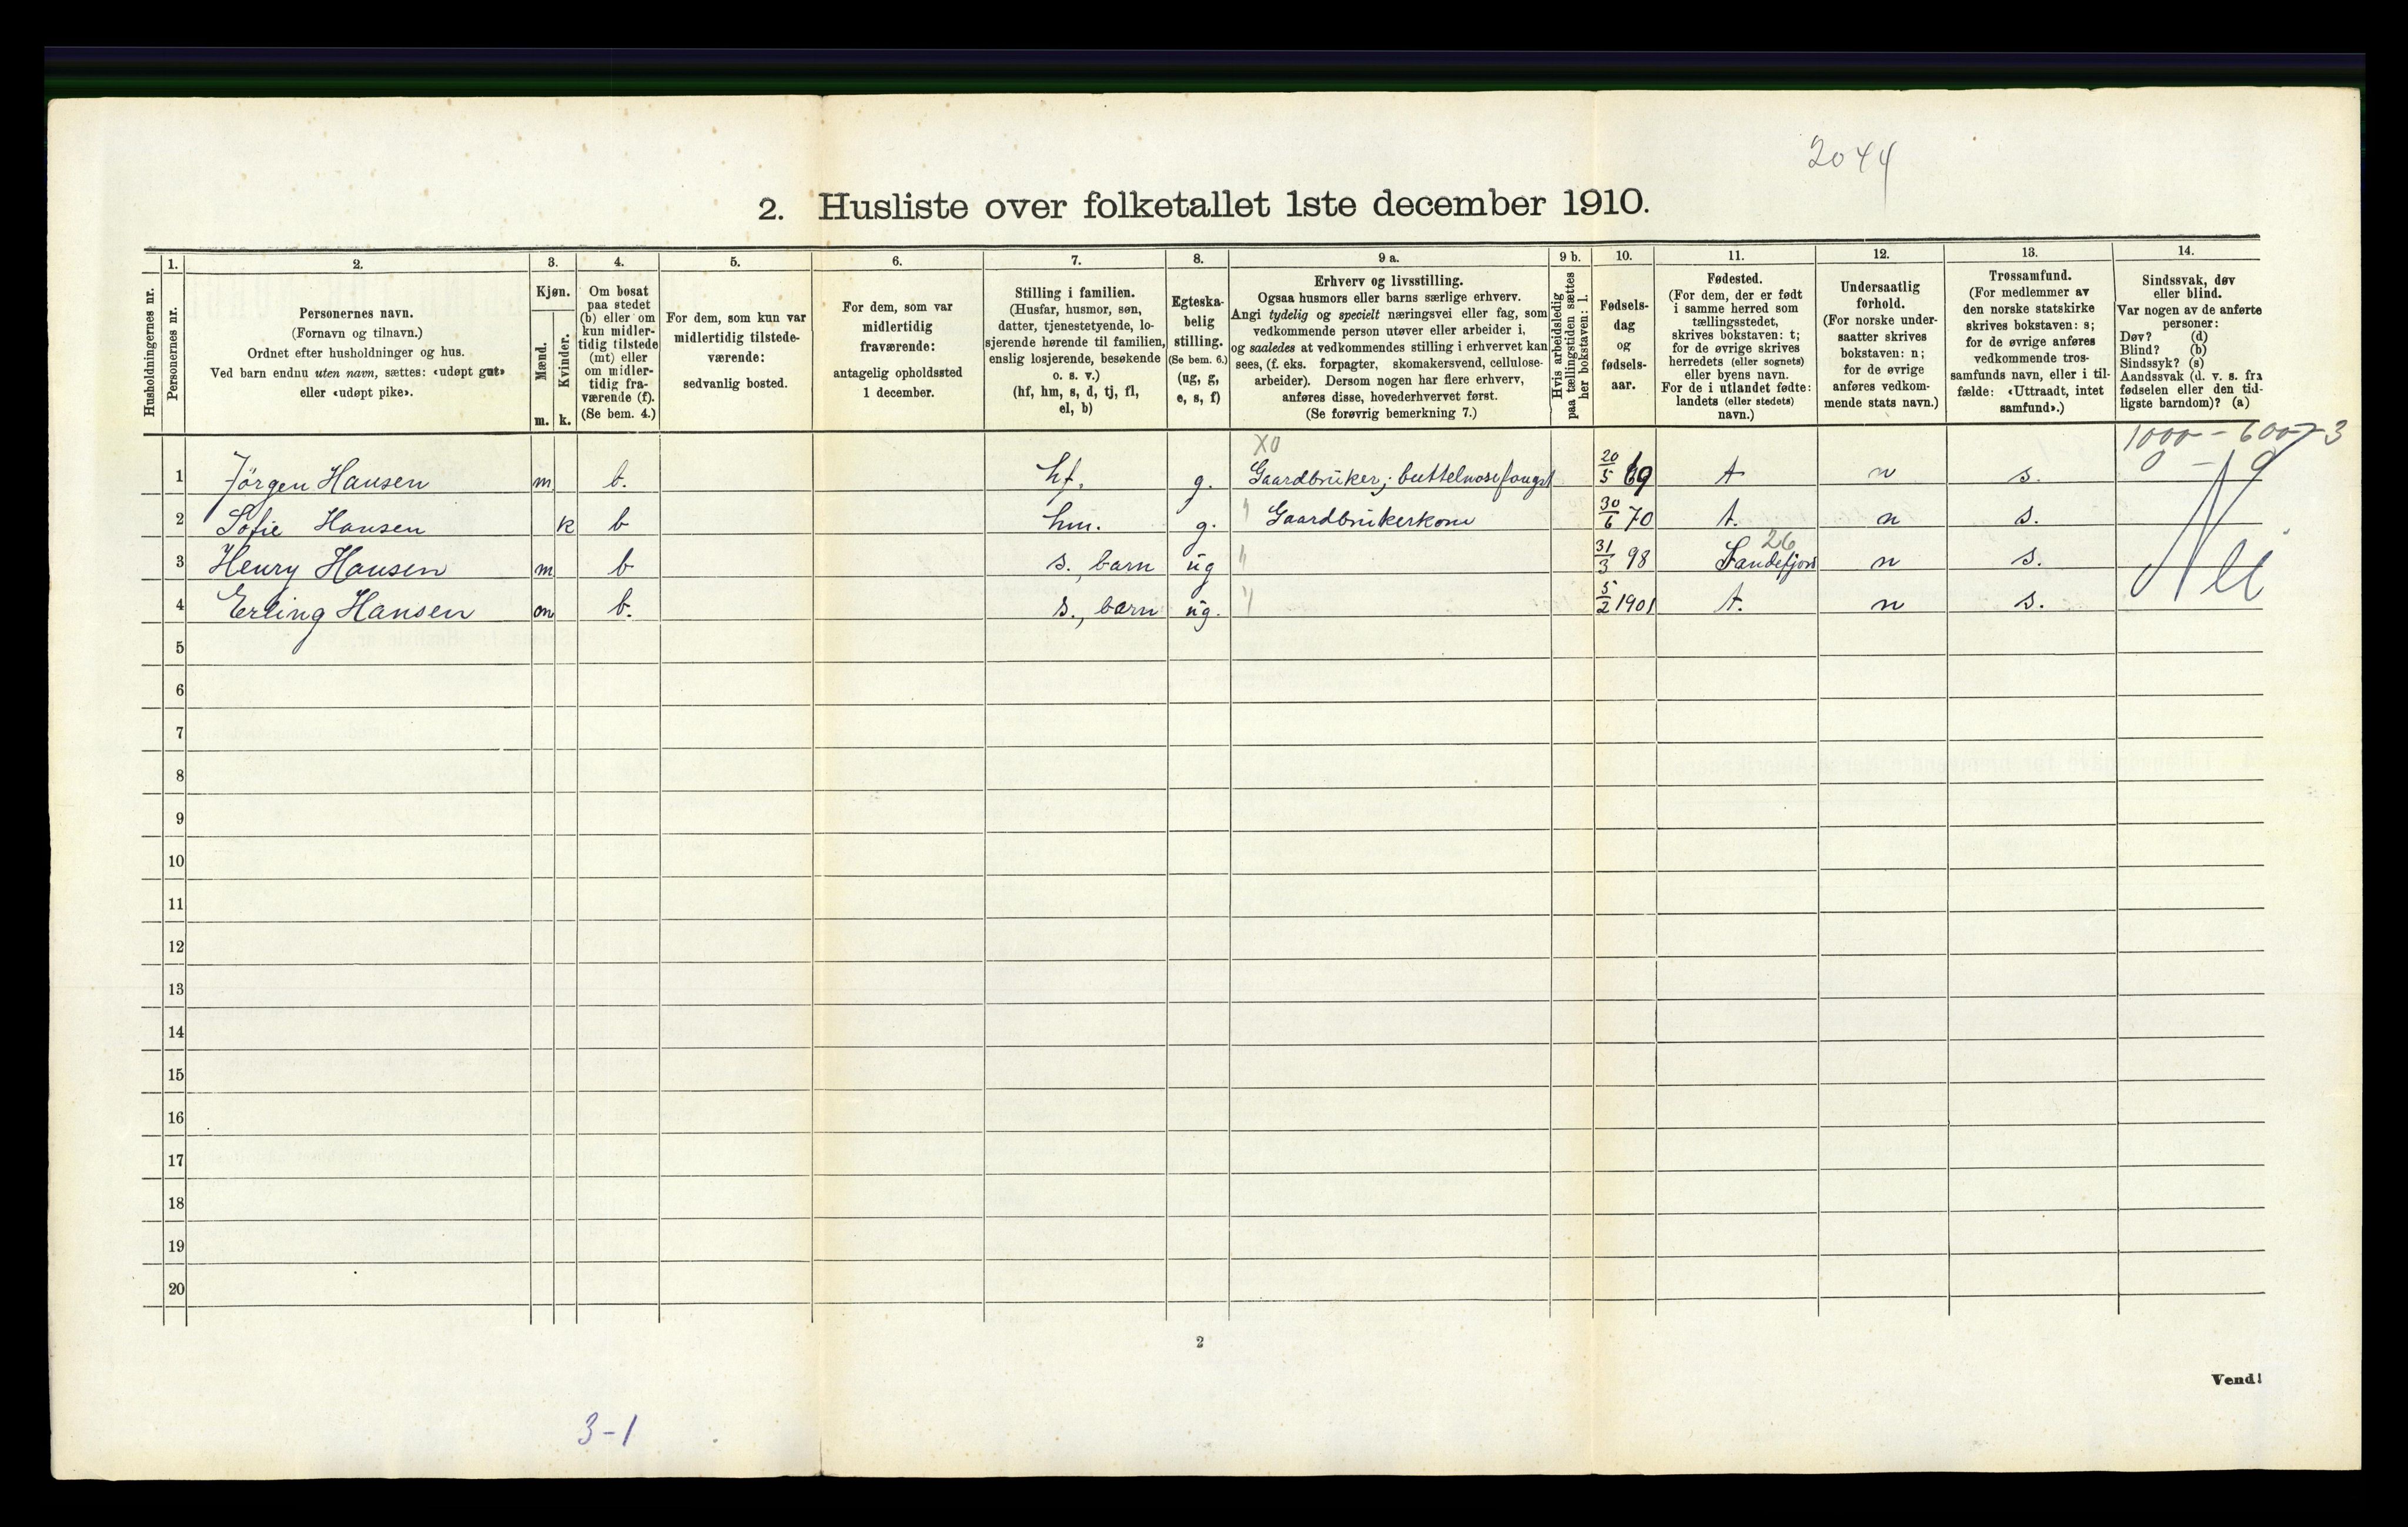 2044
2. Husliste over folketallet 1ste december 1910.
1. 2. 3. 4. 5. 6. 7. 8. 9 a. 9 b. 10. 11. 12. 13. 14.
Husholdningernes nr.
Personernes nr.
Personernes navn.
(Fornavn og tilnavn.)
Ordnet efter husholdninger og hus.
Ved barn endnu uten navn, sættes: «udøpt gut»
eller «udøpt pike».
Kjøn.
Mænd.
Kvinder.
m. k.
Om bosat
paa stedet
(b) eller om
kun midler-
tidig tilstede
(mt) eller
om midler-
tidig fra-
værende (f).
(Se bem. 4.)
For dem, som kun var
midlertidig tilstede-
værende:
sedvanlig bosted.
For dem, som var
midlertidig
fraværende:
antagelig opholdssted
1 december.
Stilling i familien.
(Husfar, husmor, søn,
datter, tjenestetyende, lo-
sjerende hørende til familien,
enslig losjerende, besøkende
o. s. v.)
(hf, hm, s, d, tj, fl,
el, b)
Egteska-
belig
stilling.
(Se bem. 6.)
(ug, g,
e, s, f)
Erhverv og livsstilling.
Ogsaa husmors eller barns særlige erhverv.
Angi tydelig og specielt næringsvei eller fag, som
vedkommende person utøver eller arbeider i,
og saaledes at vedkommendes stilling i erhvervet kan
sees, (f. eks. forpagter, skomakersvend, cellulose-
arbeider). Dersom nogen har flere erhverv,
anføres disse, hovederhvervet først.
(Se forøvrig bemerkning 7.)
Hvis arbeidsledig
paa tællingstiden sættes
her bokstaven: l.
Fødsels-
dag
og
fødsels-
aar.
Fødested.
(For dem, der er født
i samme herred som
tællingsstedet,
skrives bokstaven: t;
for de øvrige skrives
herredets (eller sognets)
eller byens navn.
For de i utlandet fødte:
landets (eller stedets)
navn.)
Undersaatlig
forhold.
(For norske under-
saatter skrives
bokstaven: n;
for de øvrige
anføres vedkom-
mende stats navn.)
Trossamfund.
(For medlemmer av
den norske statskirke
skrives bokstaven: s;
for de øvrige anføres
vedkommende tros-
samfunds navn, eller i til-
fælde: «Uttraadt, intet
samfund».)
Sindssvak, døv
eller blind.
Var nogen av de anførte
personer:
Døv? (d)
Blind? (b)
Sindssyk? (s)
Aandssvak (d. v. s. fra
fødselen eller den tid-
ligste barndom)? (a)
1000 - 600 - 3
0 - 9
X0
1 Jörgen Hansen m b. hf. g. Gaardbruker; buttelnosefangst 20/5 69 t n s.
2 Sofie Hansen k b hm. g. " Gaardbrukerkone 30/6 70 t. n s.
26
3 Henry Hansen m b s., barn ug " 31/3 98 Sandefjord n s.
4 Erling Hansen m b. s., barn ug. " 5/2 1901 t. n s.
Nei
5
6
7
8
9
10
11
12
13
14
15
16
17
18
19
20
2
Vend!
3-1